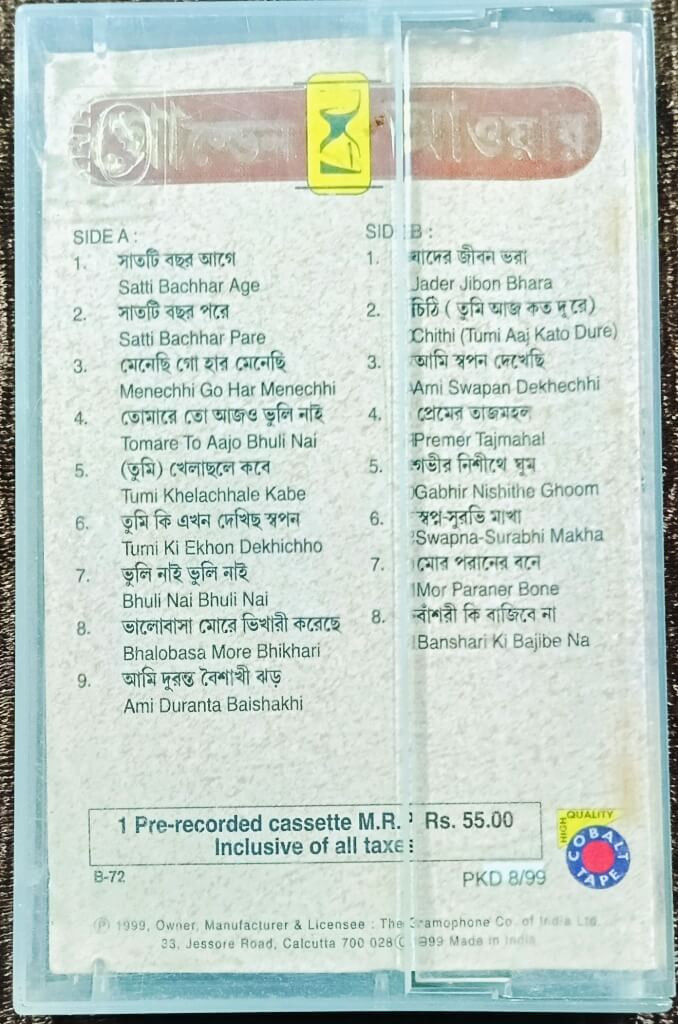 গোল্ডেন আওয়ার
SIDE A :
1. সাতটি বছর আগে
Satti Bachhar Age
2. সাতটি বছর পরে
Satti Bachhar Pare
3. মেনেছি গো হার মেনেছি
Menechhi Go Har Menechhi
4. তোমারে তো আজও ভুলি নাই
Tomare To Aajo Bhuli Nai
5. (তুমি) খেলাছলে কবে
Tumi Khelachhale Kabe
6. তুমি কি এখন দেখিছ স্বপন
Tumi Ki Ekhon Dekhichho
7. ভুলি নাই ভুলি নাই
Bhuli Nai Bhuli Nai
8. ভালোবাসা মোরে ভিখারী করেছে
Bhalobasa More Bhikhari
9. আমি দুরন্ত বৈশাখী ঝড়
Ami Duranta Baishakhi
SIDE B :
1. যাদের জীবন ভরা
Jader Jibon Bhara
2. চিঠি ( তুমি আজ কত দূরে)
Chithi (Tumi Aaj Kato Dure)
3. আমি স্বপন দেখেছি
Ami Swapan Dekhechhi
4. প্রেমের তাজমহল
Premer Tajmahal
5. গভীর নিশীথে ঘুম
Gabhir Nishithe Ghoom
6. স্বপ্ন-সুরভি মাখা
Swapna-Surabhi Makha
7. মোর পরানের বনে
Mor Paraner Bone
8. বাঁশরী কি বাজিবে না
Banshari Ki Bajibe Na
1 Pre-recorded cassette M.R.P Rs. 55.00
Inclusive of all taxes
B-72
PKD 8/99
HIGH QUALITY
COBALT TAPE
℗ 1999, Owner, Manufacturer & Licensee : The Gramophone Co. of India Ltd.
33, Jessore Road, Calcutta 700 028 © 1999 Made in India